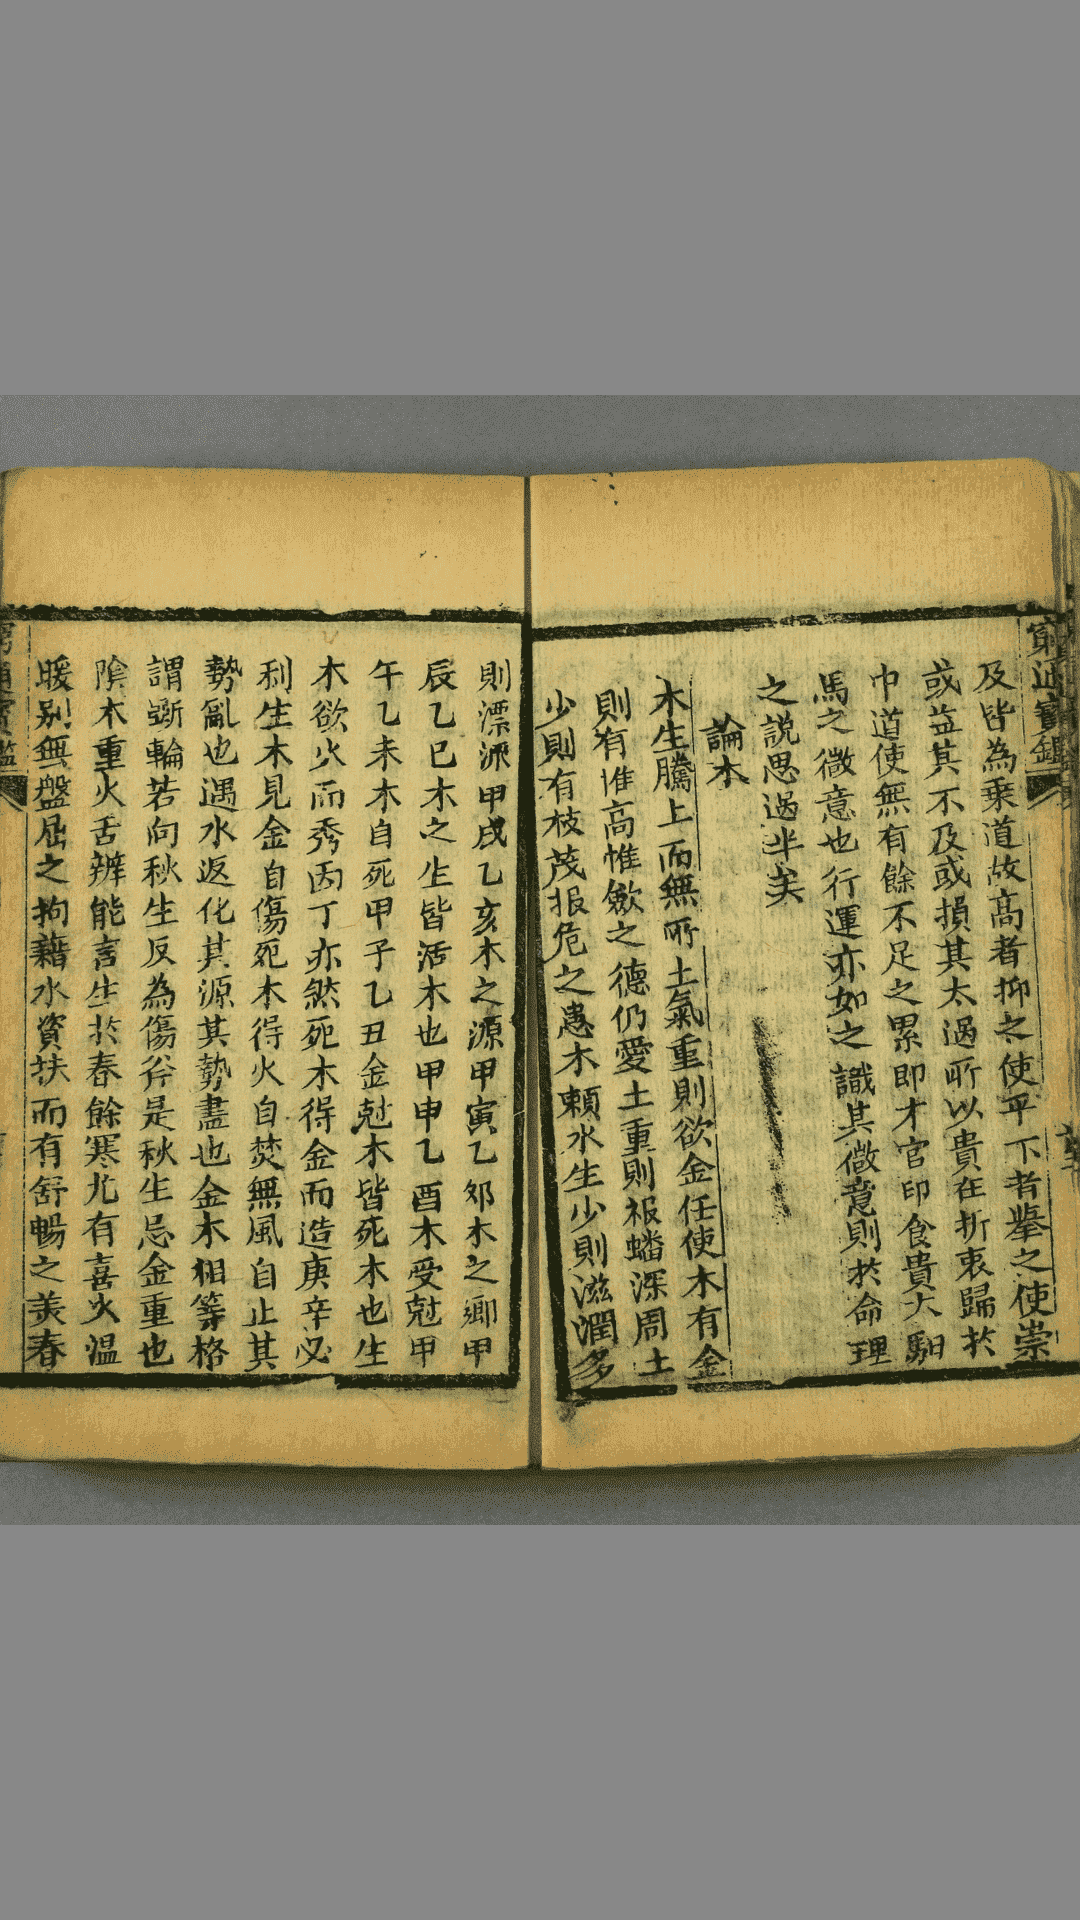 窮通寶鑑
及皆為乗道故高者抑之使平下者舉之使崇
或益其不及或損其太過所以貴在折衷歸於
中道使無有餘不足之累即才官印食貴大馹
馬之微意也行運亦如之識其微意則於命理
之說思過半矣
論木
木生騰上而無所止氣重則欲金任使木有金
則有惟高惟歛之德仍愛土重則根蟠深固土
少則有枝茂根危之患木賴水生少則滋潤多
則漂泒甲戌乙亥木之源甲寅乙夘木之鄉甲
辰乙巳木之生皆活木也甲申乙酉木受尅甲
午乙未木自死甲子乙丑金尅木皆死木也生
木欲火而秀丙丁亦然死木得金而造庚辛必
利生木見金自傷死木得火自焚無風自止其
勢亂也遇水返化其源其勢盡也金木相等格
謂斵輪若向秋生反為傷斧是秋生忌金重也
陰木重火舌辨能言生於春餘寒尤有喜火温
暖别無盤屈之拘藉水資扶而有舒暢之美春